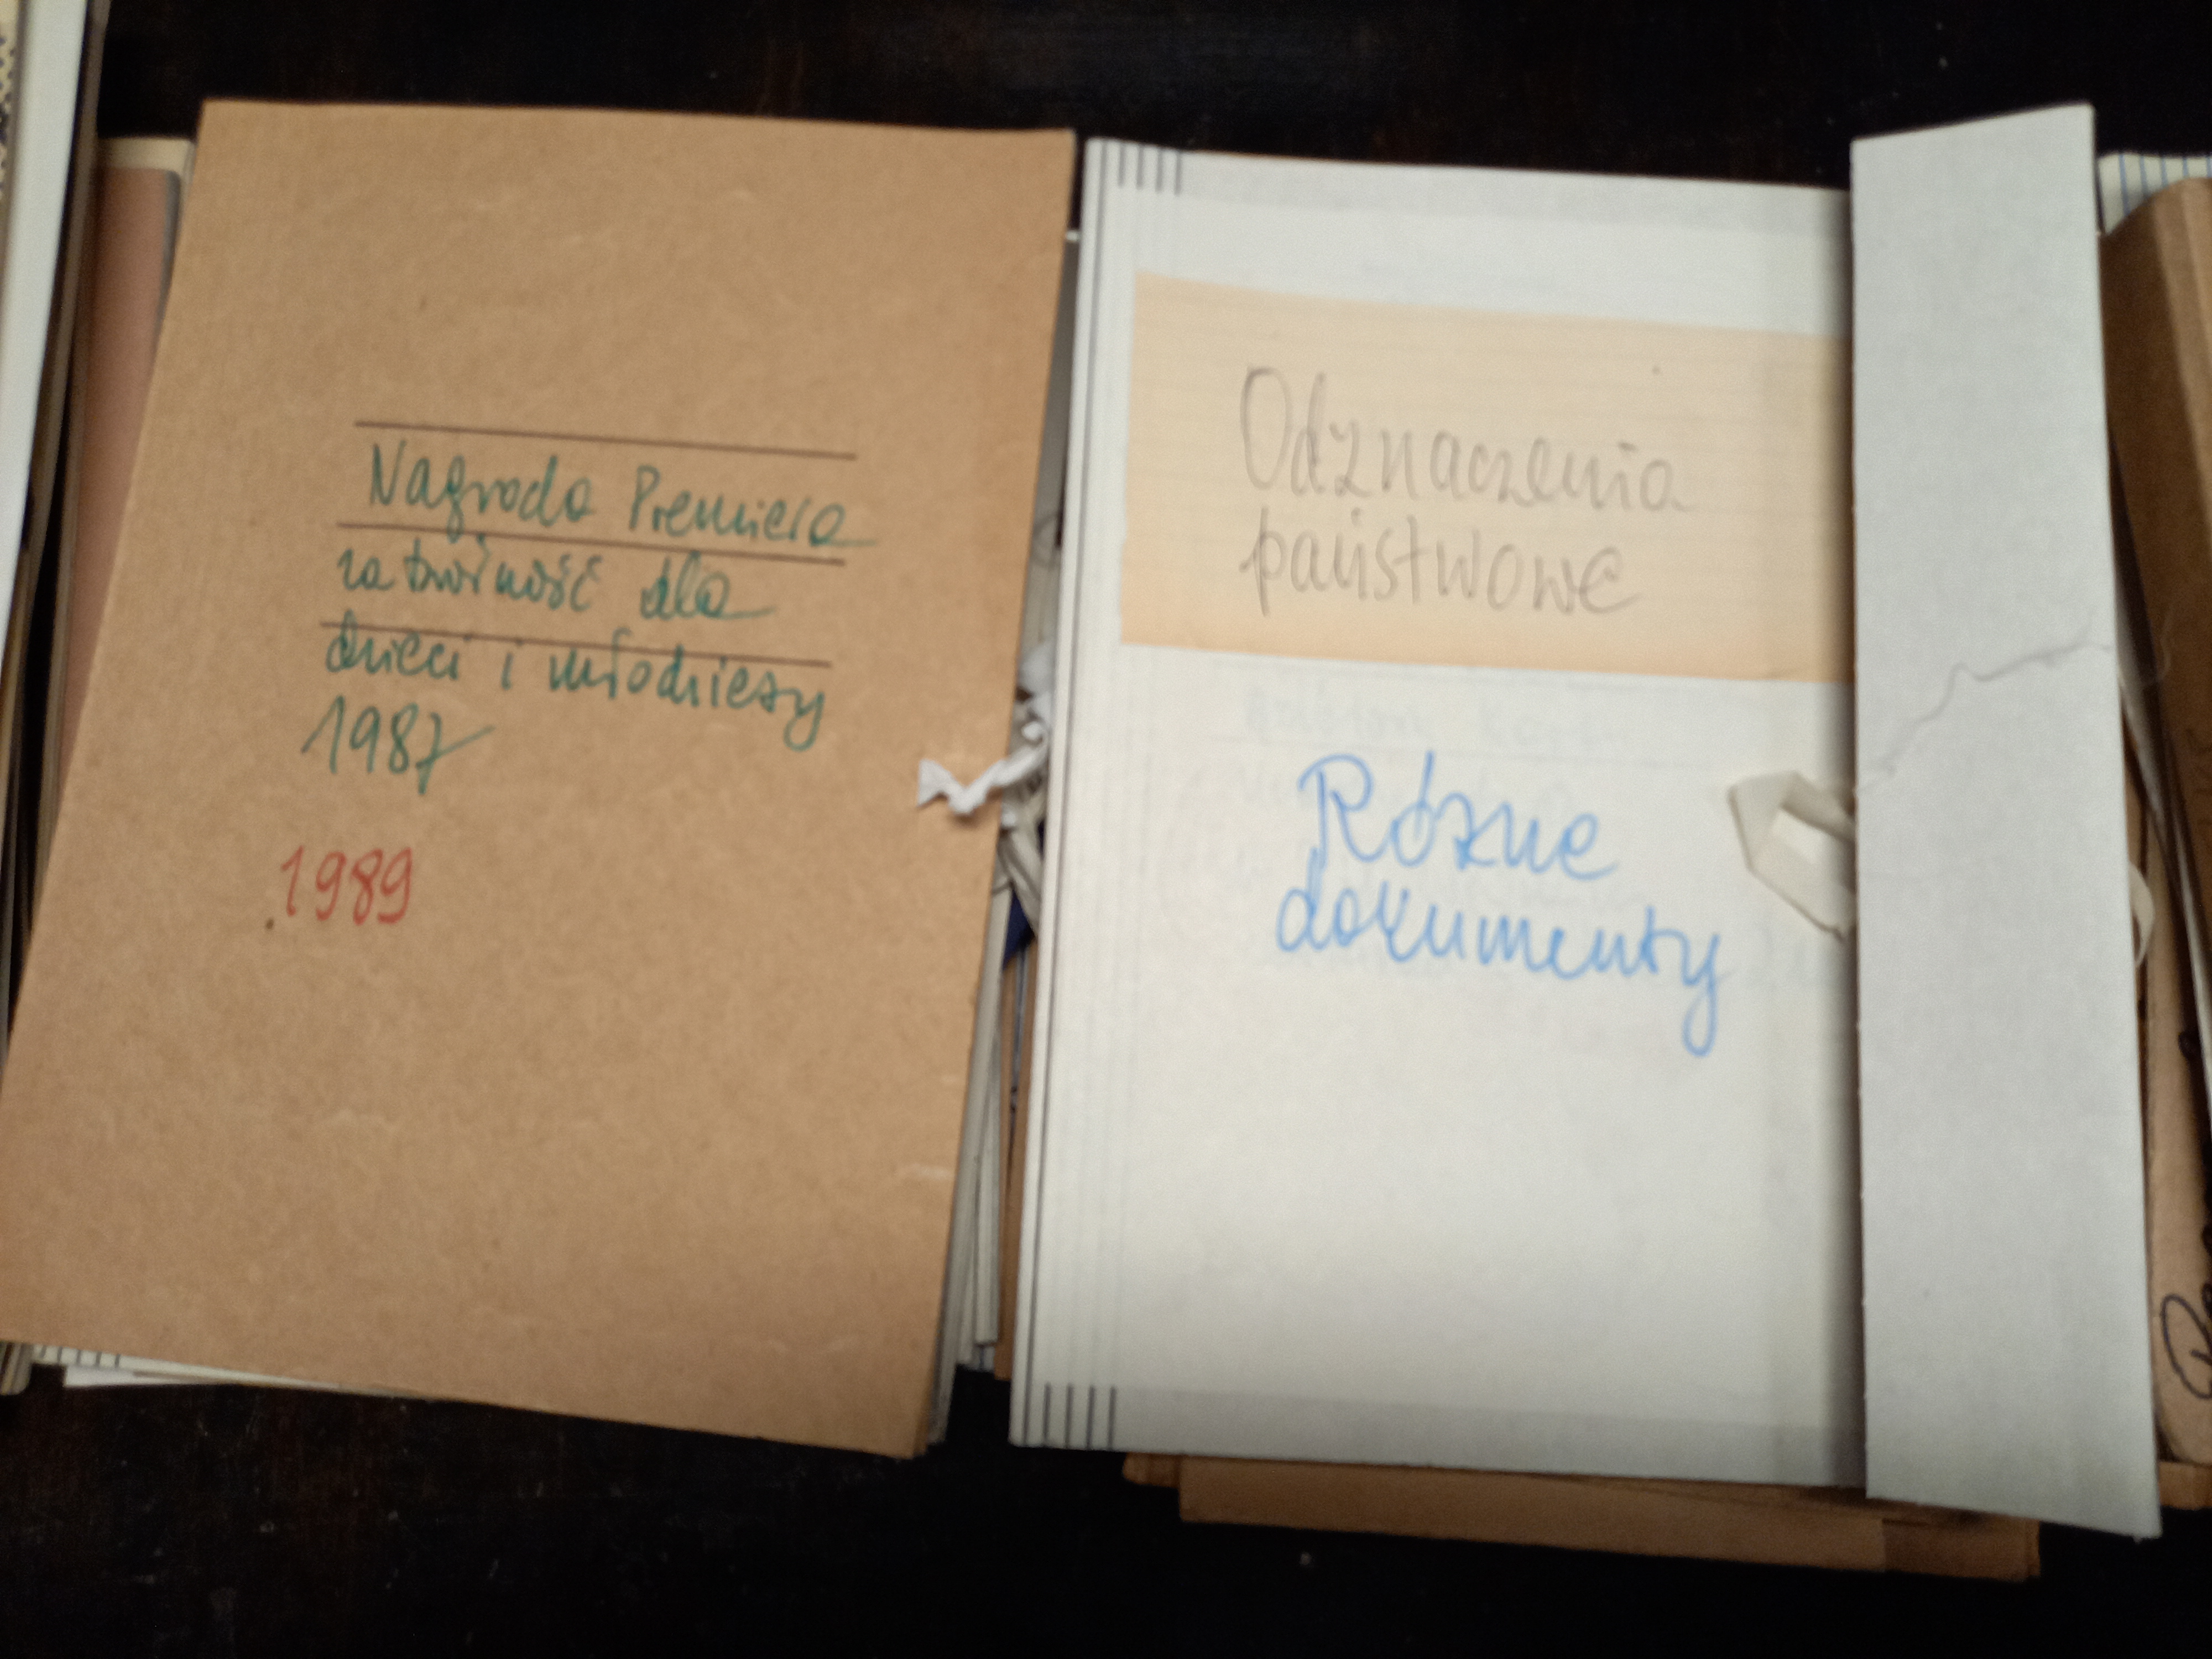 Nagroda Premiera
za twórczość dla
dzieci i młodzieży
1987
1989
Odznaczenia
państwowe
Różne
dokumenty